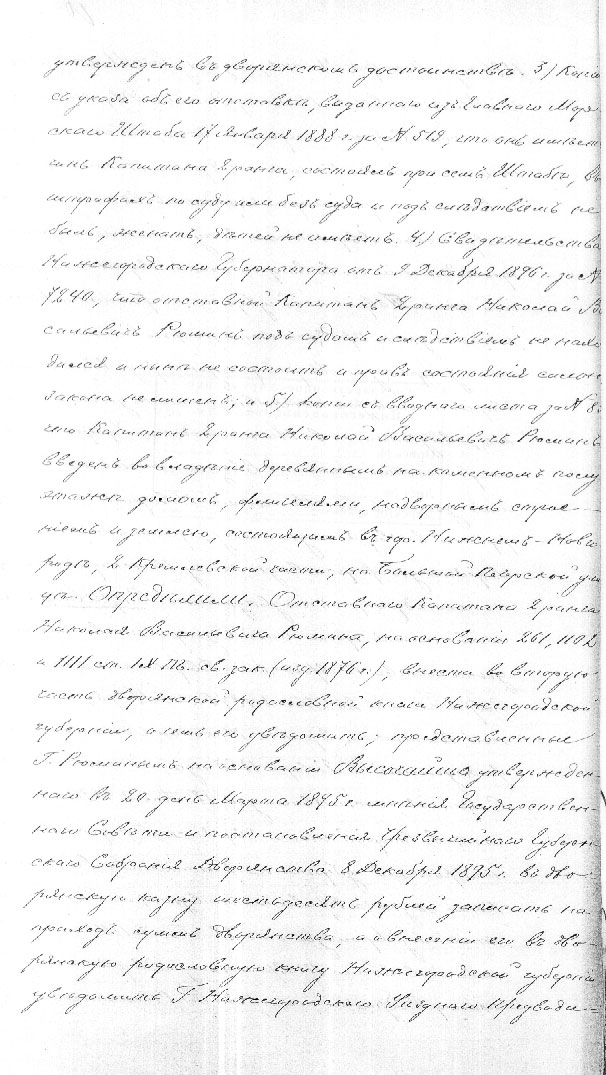 утвержденъ въ дворянскомъ достоинствѣ. 3) Копіи
съ указа объ его отставкѣ, выданнаго изъ Главнаго Мор
скаго Штаба 17 Января 1888 г. за № 519, что онъ имѣетъ
чинъ Капитана 2 ранга, состоялъ при семъ Штабѣ, въ
штрафахъ по суду или безъ суда и подъ слѣдствіемъ не
былъ, женатъ, дѣтей не имѣетъ. 4) Свидѣтельства
Нижегородскаго Губернатора отъ 9 Декабря 1896 г. за №
7240, что отставной Капитанъ 2 ранга Николай Ва
сильевичъ Рюминъ подъ судомъ и слѣдствіемъ не нахо
дился и нынѣ не состоитъ и правъ состоянія силою
закона не лишенъ; и 5) Копіи съ вводнаго листа за №
что Капитанъ 2 ранга Николай Васильевичъ Рюминъ
введенъ во владѣніе деревяннымъ на каменномъ полу
этажѣ домомъ, флигелями, надворнымъ строе-
ніемъ и землею, состоящимъ въ гор. Нижнемъ-Новго
родѣ, 2 Кремлевской части, на Большой Печерской ули
цѣ. Опредѣлили: Отставнаго Капитана 2 ранга
Николая Васильевича Рюмина, на основаніи 261, 1102
и 1111 ст. IX т. св. зак. (изд. 1876 г.), внести во вторую
часть дворянской родословной книги Нижегородской
губерніи, о чемъ его увѣдомить; представленные
Г. Рюминымъ на основаніи Высочайше утвержден-
наго въ 20 день Марта 1895 г. мнѣнія Государствен-
наго Совѣта и постановленія Чрезвычайнаго Губерн-
скаго Собранія Дворянства 8 Декабря 1895 г. въ дво-
рянскую казну шестьдесятъ рублей записать на
приходъ суммъ дворянства, а о внесеніи его въ дво-
рянскую родословную книгу Нижегородской губерніи
увѣдомить Г. Нижегородскаго Уѣзднаго Предводи-